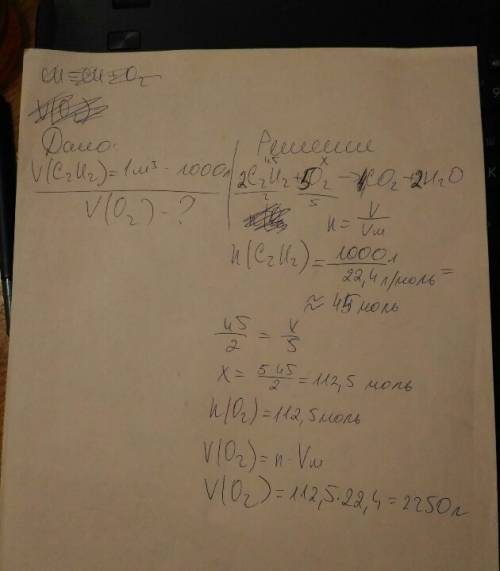 CH≡CH+O₂
V(O₂)
Дано:
V(C₂H₂)=1м³ - 1000л
V(O₂) - ?
Решение
45 x
2C₂H₂+5O₂→4CO₂+2H₂O
2 5
n=V/Vм
n(C₂H₂)=1000л/22,4л/моль=
≈45моль
45/2=x/5
x=5·45/2=112,5 моль
n(O₂)=112,5моль
V(O₂)=n·Vм
V(O₂)=112,5·22,4=2250л